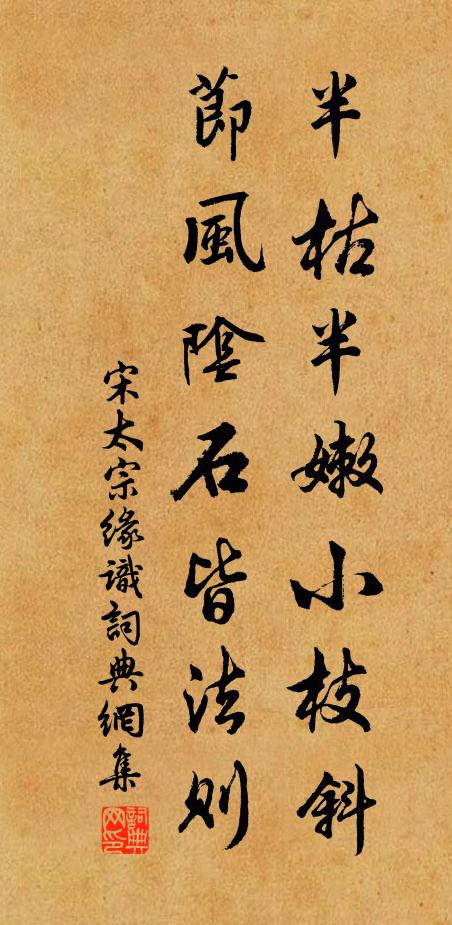 半枯半嫩小枝斜
節風陰石皆法則
宋太宗緣識詞典網集
詞典網印